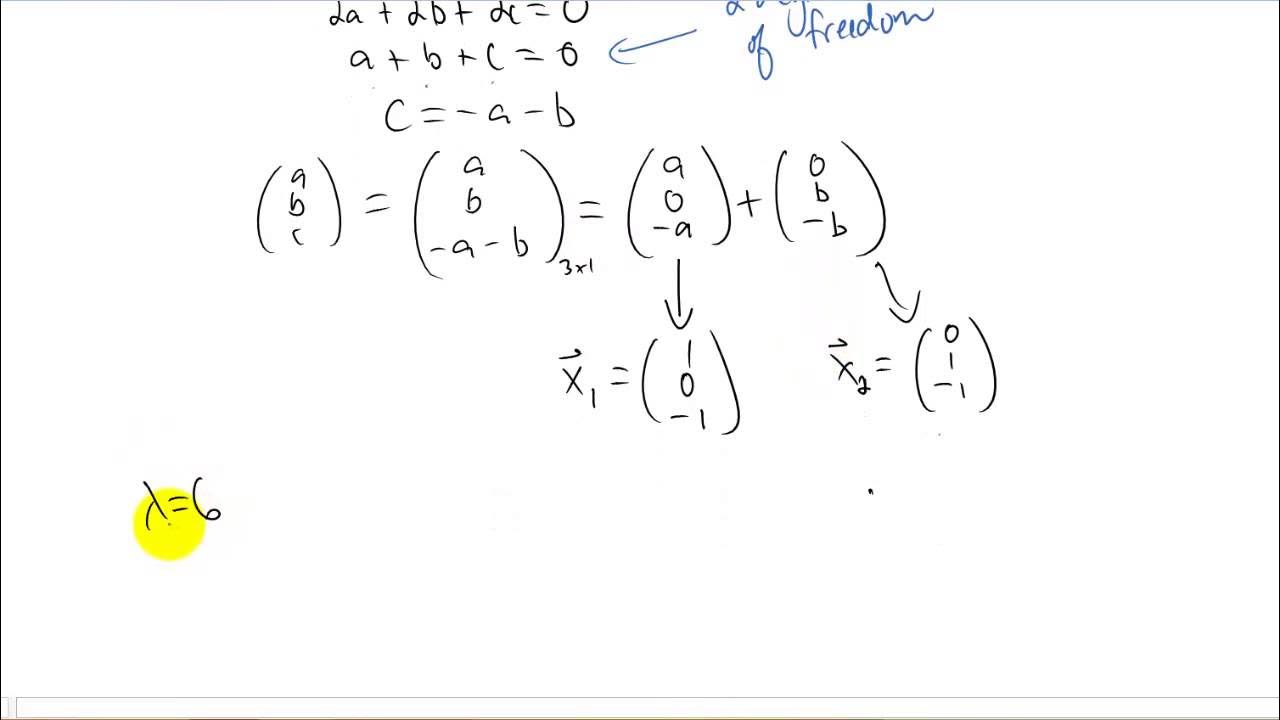 2a + 2b + 2c = 0
a + b + c = 0
of freedom
c = -a - b
(a b c) = (a b -a-b) 3x1 = (a 0 -a) + (0 b -b)
x⃗₁ = (1 0 -1) x⃗₂ = (0 1 -1)
λ=6